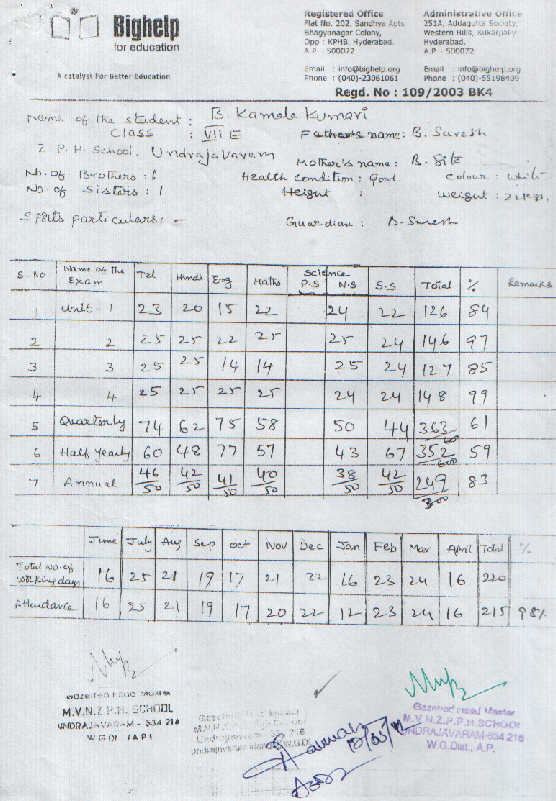 Bighelp
for education
A catalyst For Better Education
Registered Office
Flat No. 202, Sandhya Apts
Bhagyanagar Colony,
Opp : KPHB, Hyderabad.
A.P - 500072
Email : info@bighelp.org
Phone : (040)-23061061
Administrative Office
251A, Addagutta Society,
Western Hills, Kukatpally
Hyderabad.
A.P - 500072
Email : info@bighelp.org
Phone : (040)-55198409
Regd. No : 109/2003 BK4
Name of the student : B. Kamala Kumari
Class : VII E Father's name: B. Suresh
Z.P.H. School, Undrajavaram Mother's name : B. Site
No. of Brothers : 1 Health condition : Good Colour : White
No of Sisters : 1 Height : Weight :
Sports particulars : - Guardian : B. Suresh
S.No Name of the Exam Tel Hindi Eng Maths Science P.S N.S S.S Total % Remarks
1 Unit - 1 23 20 15 22 24 22 126 84
2 2 25 25 22 25 25 24 146 97
3 3 25 25 14 14 25 24 127 85
4 4 25 25 25 25 24 24 148 99
5 Quarterly 74 62 75 58 50 44 363/600 61
6 Half Yearly 60 48 77 57 43 67 352/600 59
7 Annual 46/50 42/50 41/50 40/50 38/50 42/50 249/300 83
June July Aug Sep Oct Nov Dec Jan Feb Mar April Total %
Total No. of Working days 16 25 21 19 17 21 22 16 23 24 16 220
Attendance 16 25 21 19 17 20 22 12 23 24 16 215 98%
Gazetted Head Master
M.V.N.Z.P.H. SCHOOL
UNDRAJAVARAM - 534 216
W.G.Dt. (A.P.)
Gazetted Head Master
M.V.N.Z.P.P.H.SCHOOL
UNDRAJAVARAM-534 216
W.G.Dist., A.P.